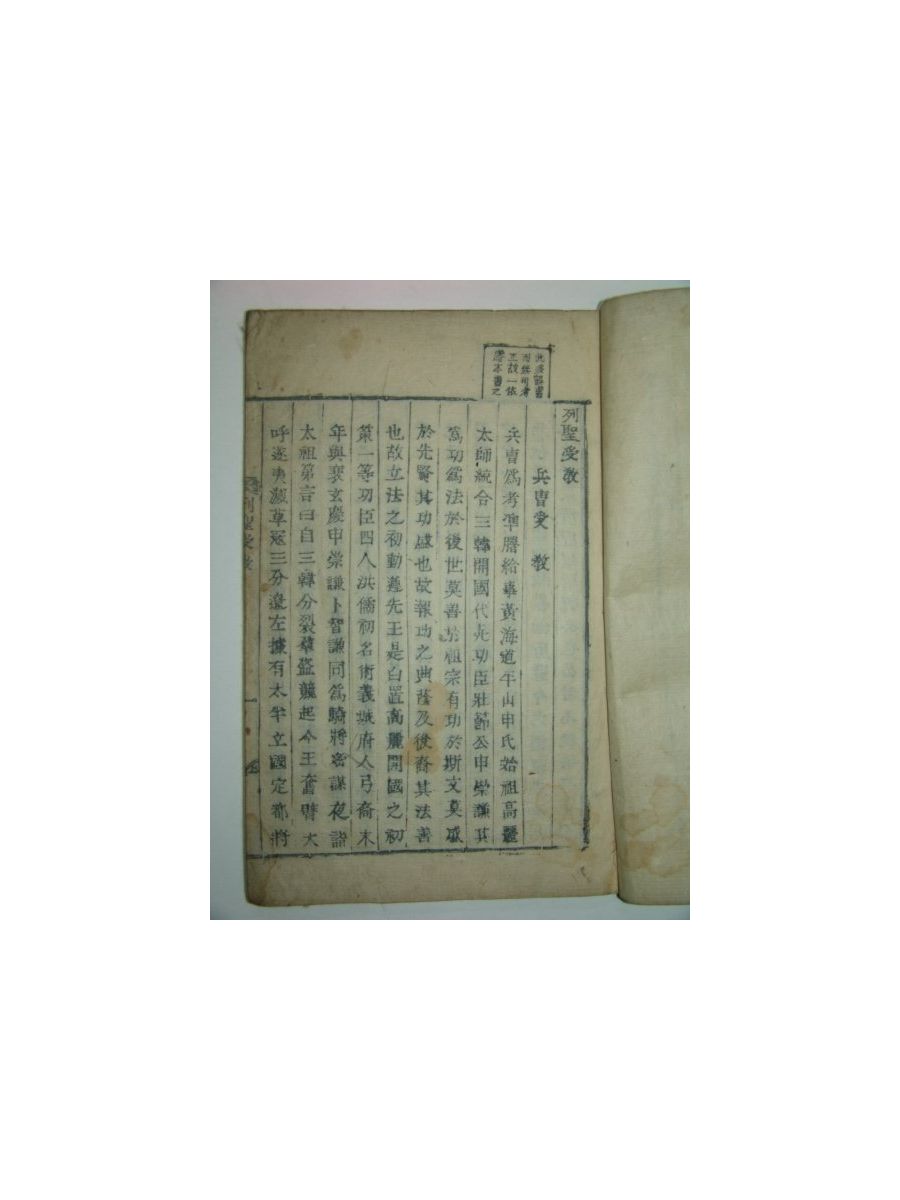 列聖受教
兵曹受　教
兵曹爲考準謄給事黃海道平山申氏始祖高麗
太師統合三韓開國代死功臣壯節公申崇謙其
爲功爲法於後世莫善於祖宗有功於斯文莫盛
於先賢其功盛也故報功之典蔭及後裔其法善
也故立法之初動遵先王是白置高麗開國之初
第一等功臣四人洪儒初名術義城府人弓裔末
年與裴玄慶申崇謙卜智謙同爲騎將密謀夜詣
太祖第言曰自三韓分裂羣盜競起今王奮臂大
呼遂夷滅草寇三分遼左據有太半立國定都將
列聖受教
一